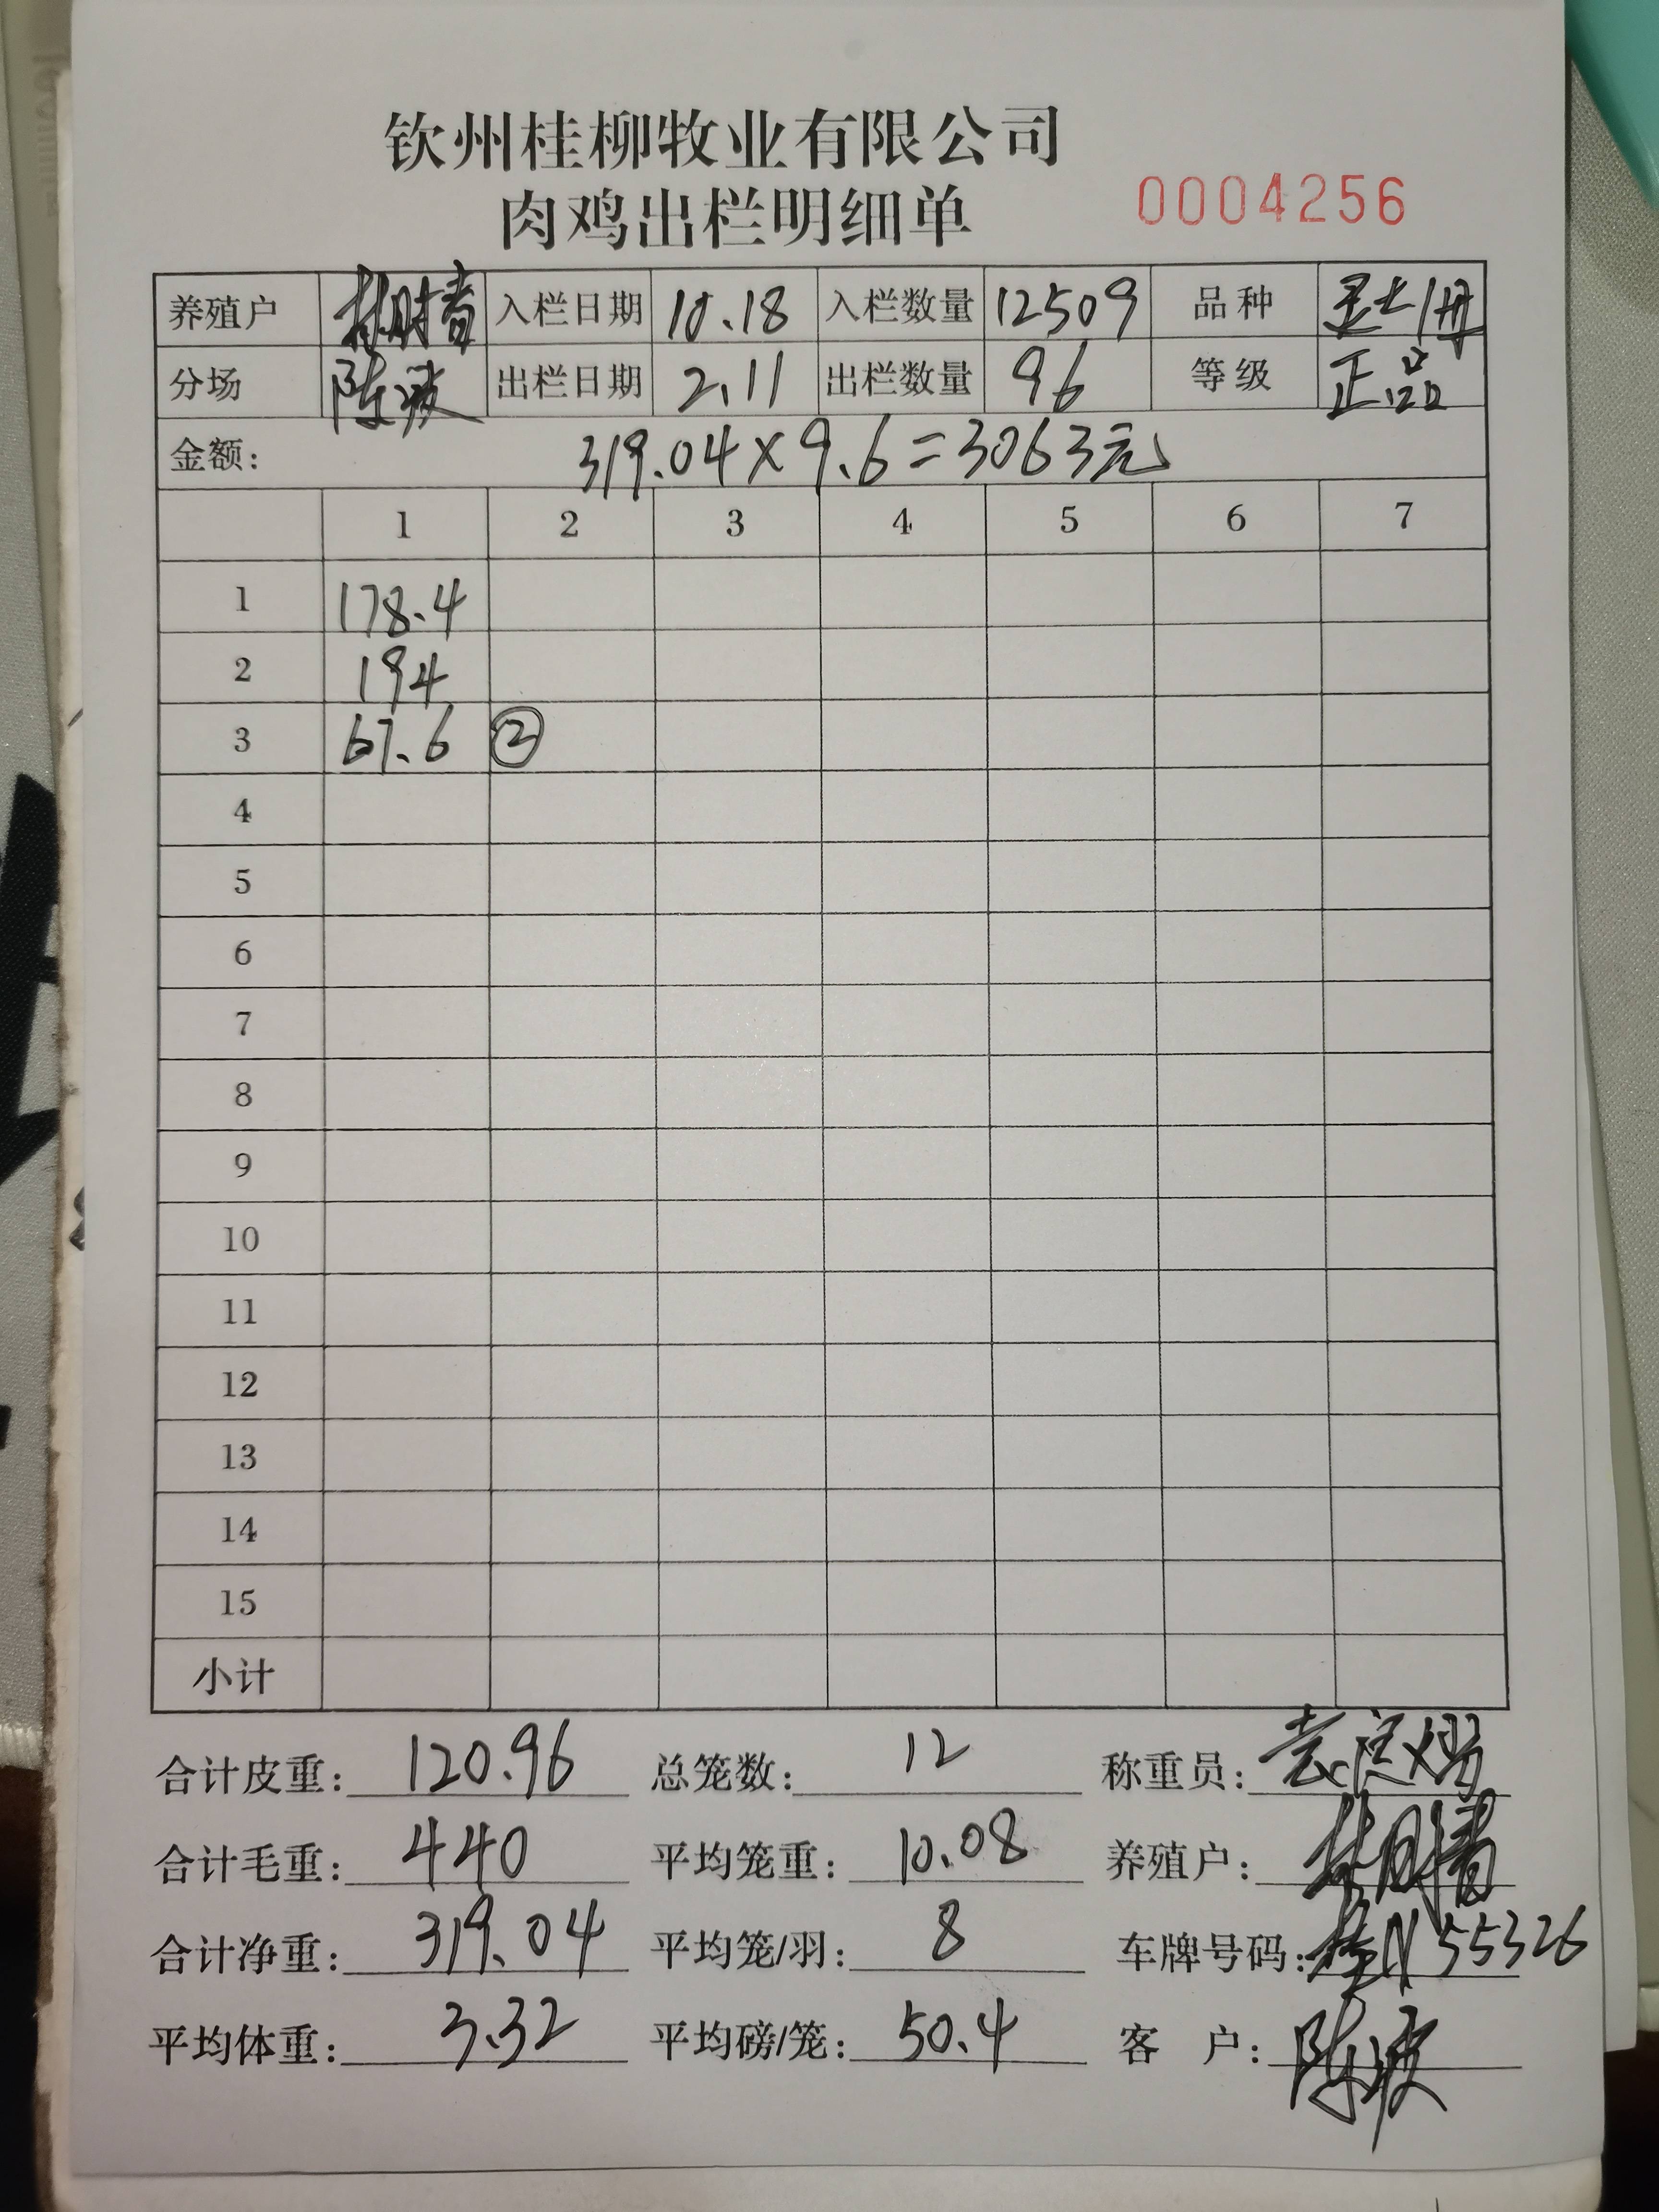 钦州桂柳牧业有限公司
肉鸡出栏明细单 0004256
养殖户 入栏日期 10.18 入栏数量 12509 品种
分场 陈波 出栏日期 2.11 出栏数量 96 等级 正品
金额: 319.04×9.6=3063元
1 2 3 4 5 6 7
1 178.4
2 194
3 67.6 ②
4
5
6
7
8
9
10
11
12
13
14
15
小计
合计皮重: 120.96 总笼数: 12 称重员:
合计毛重: 440 平均笼重: 10.08 养殖户:
合计净重: 319.04 平均笼/羽: 8 车牌号码: 桂N55326
平均体重: 3.32 平均磅/笼: 50.4 客户: 陈波